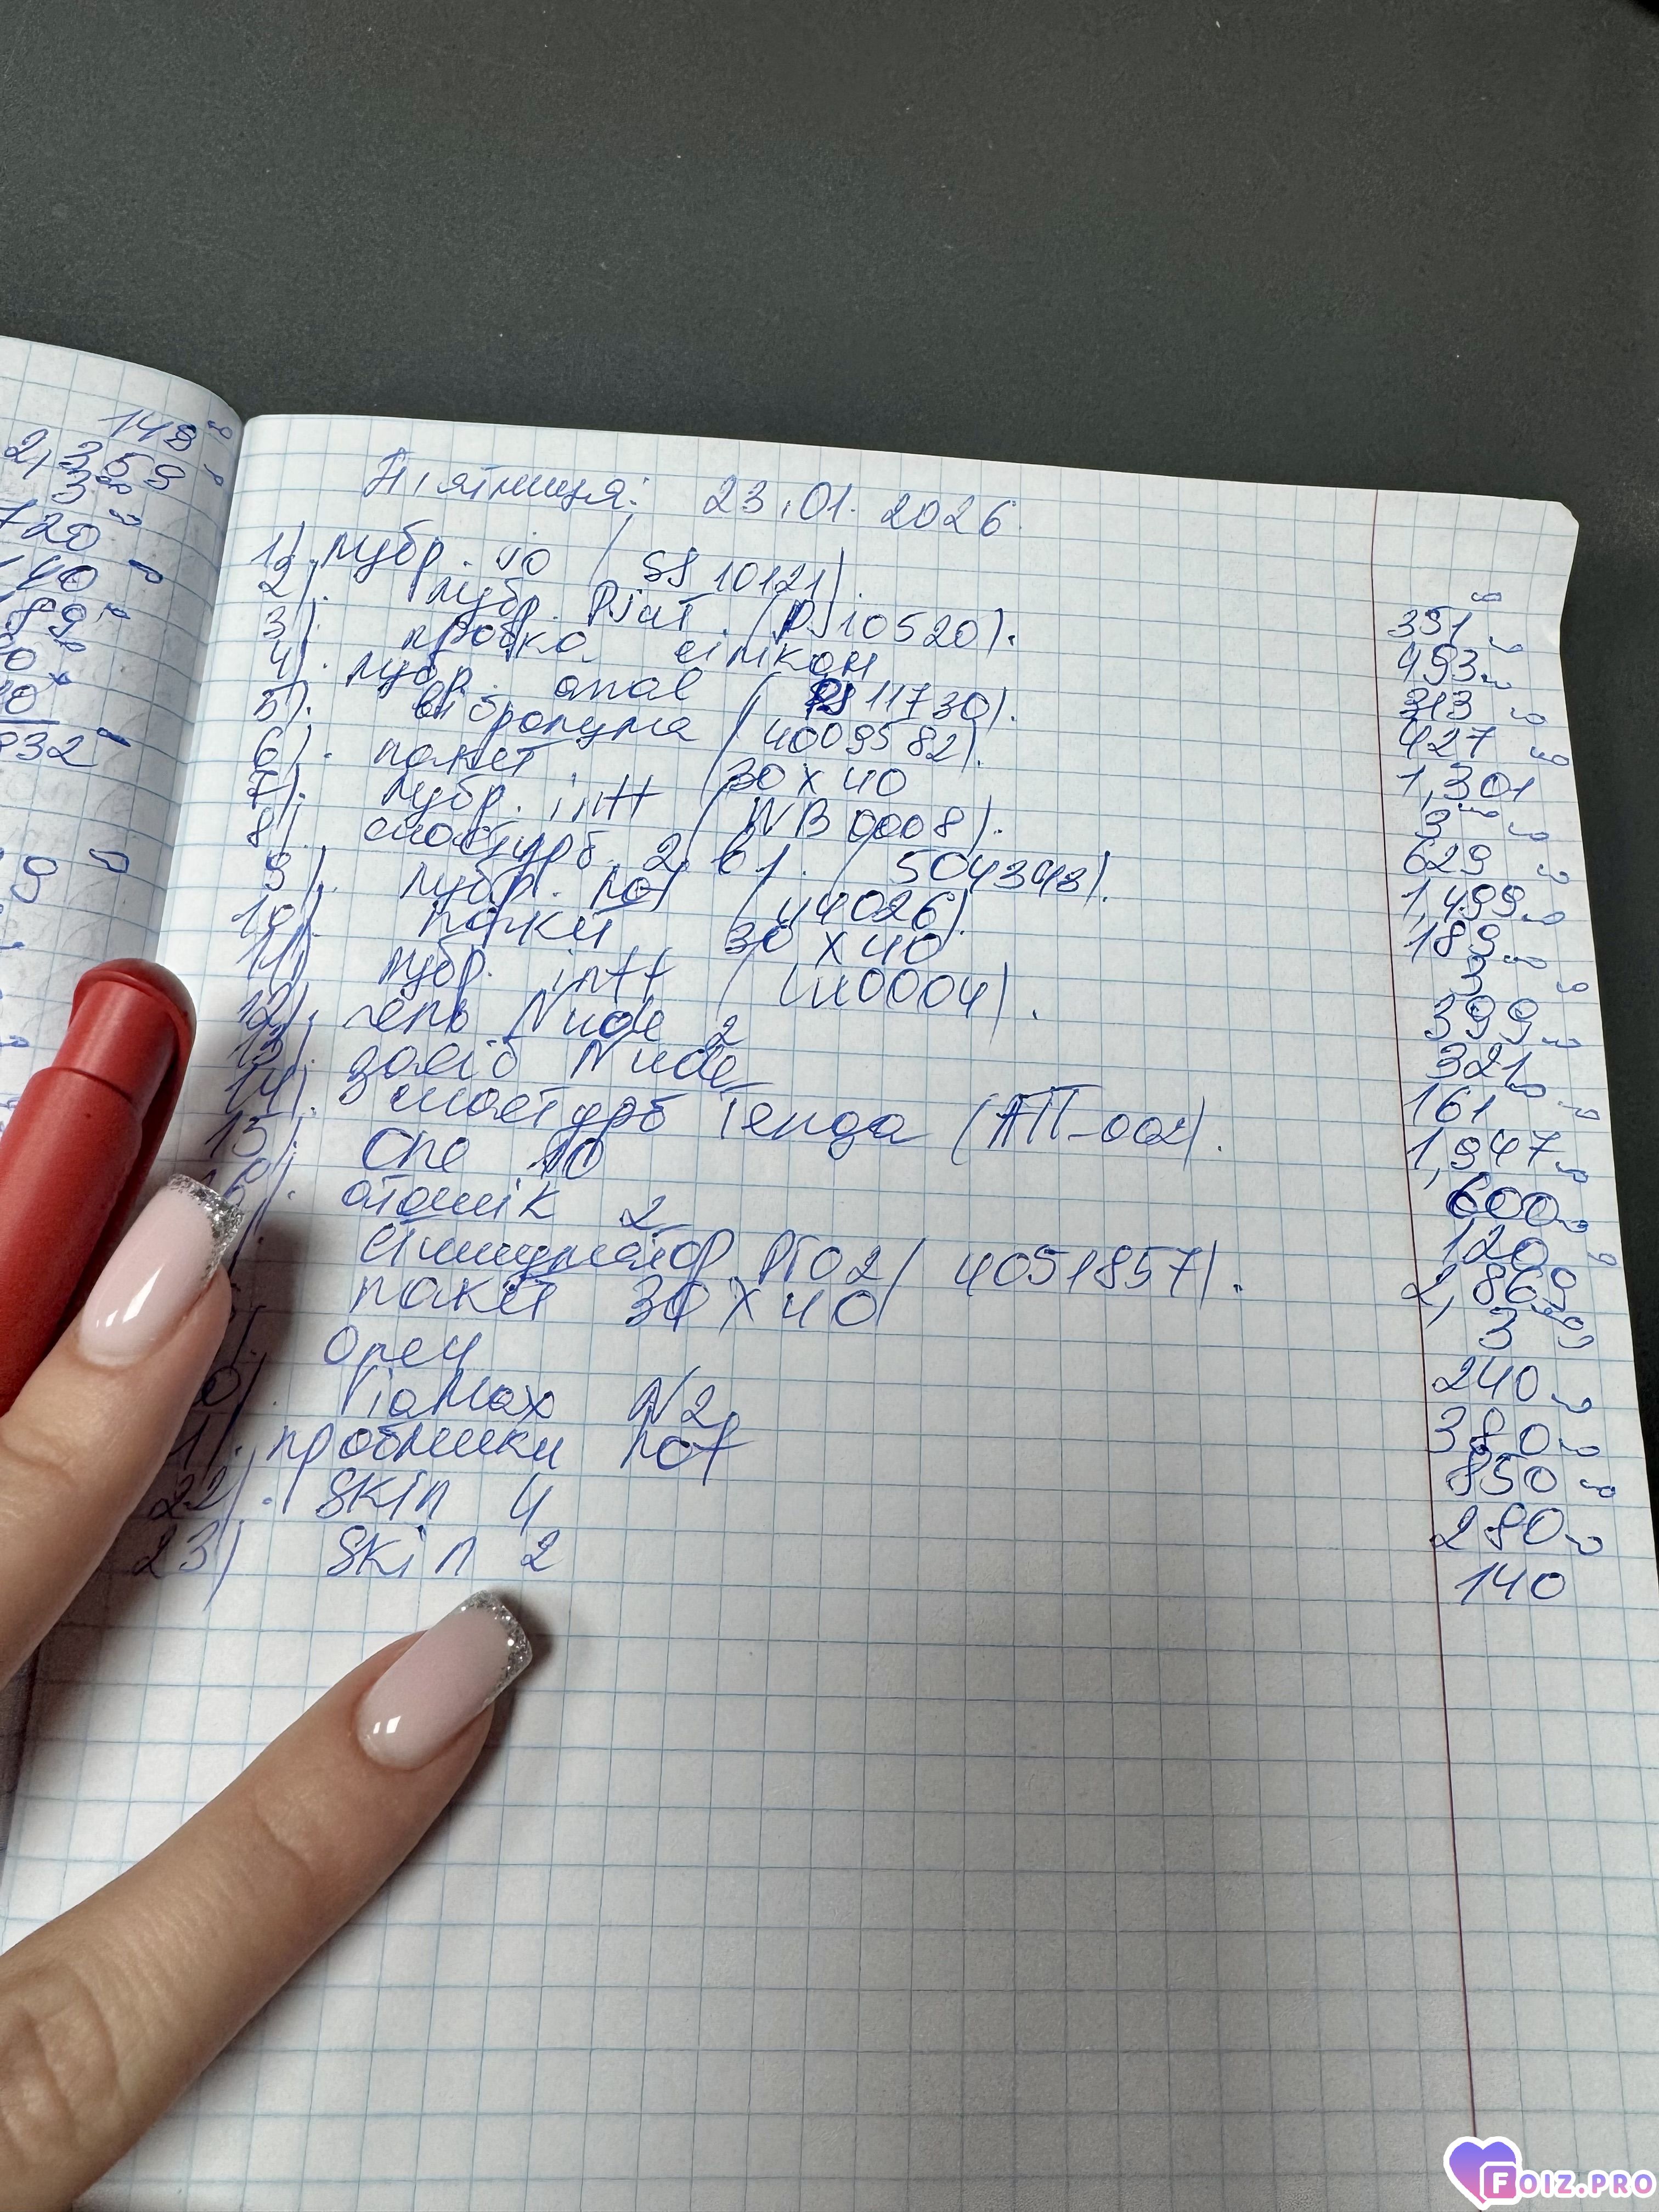 148
2,359
3
720
140
89
932
П'ятниця: 23.01.2026
1). лубр. jo (SJ 10121). 351
2). лубр. Pjur (PJ10520). 493
3). пробка силікон 313
4). лубр. anal (PJ 11730). 427
5). вібропуля (4009582). 1,301
6). пакет 30 х 40 3
7). лубр. intt (NB 0008). 629
8). мастурб. 2 в 1. (504343). 1,499
9). лубр. hot (44026). 189
10). пакет 30 х 40 3
11) лубр. intt (LU0004). 399
12). гель Nude 2 321
13). засіб Nude 161
14). мастурб Тенга (ATT-002). 1,947
15). Спе 10 600
16). атомік 2 120
стимулятор PTO2 (4051857). 2,869
пакет 30 х 40 3
Орец 240
ViaMax N2 380
пробники hot 850
22). Skin 4 280
23) Skin 2 140
FOIZ.PRO